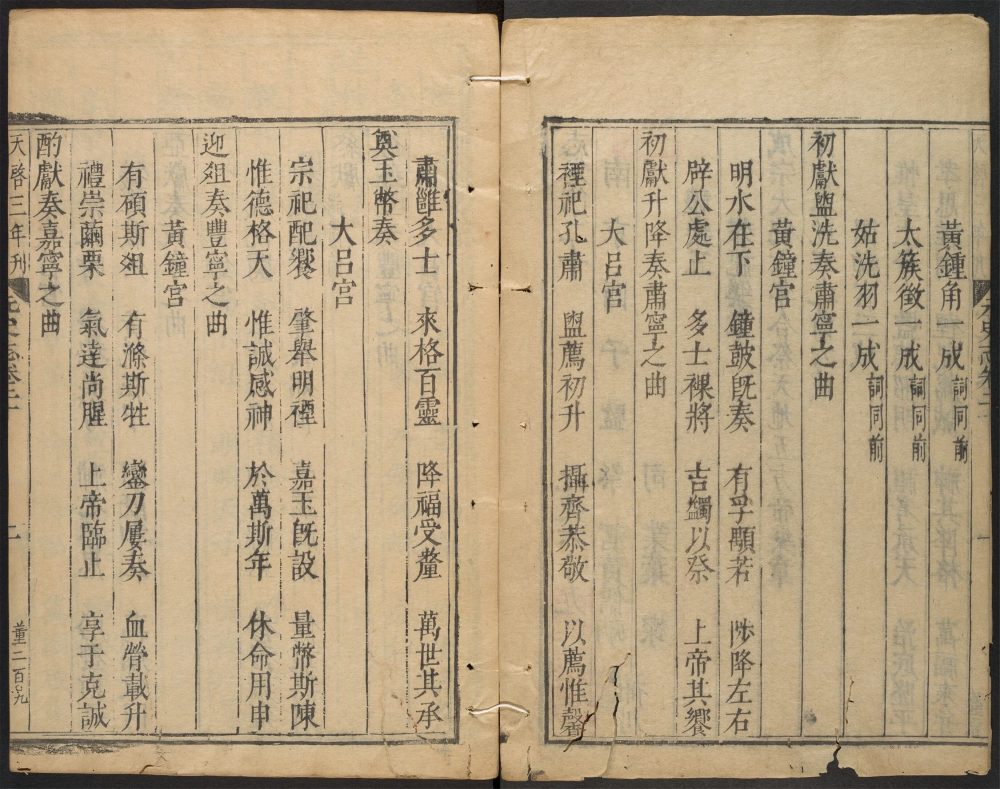 黃鍾角一成詞同前
太簇徵一成詞同前
姑洗羽一成詞同前
初獻盥洗奏肅寧之曲
黃鐘宮
明水在下 鐘鼓旣奏 有孚顒若 陟降左右
辟公處止 多士祼將 吉蠲以祭 上帝其饗
初獻升降奏肅寧之曲
大呂宮
禋祀孔肅 盥薦初升 攝齊恭敬 以薦惟馨
肅雝多士 來格百靈 降福受釐 萬世其承
奠玉幣奏
大呂宮
宗祀配饗 肇舉明禋 嘉玉旣設 量幣斯陳
惟德格天 惟誠感神 於萬斯年 休命用申
迎俎奏豐寧之曲
黃鐘宮
有碩斯俎 有滌斯牲 鑾刀屢奏 血膋載升
禮崇繭栗 氣達尚腥 上帝臨止 享于克誠
酌獻奏嘉寧之曲
天啓三年刊 元史志卷二 二